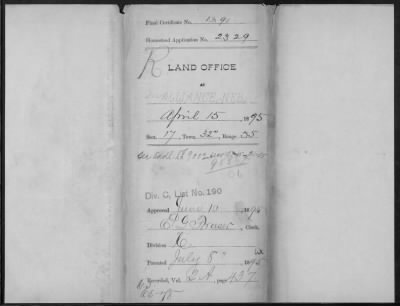 Final Certificate No. 1391
Homestead Application No. 2329
R
LAND OFFICE
AT
ALLIANCE, NEB.
April 15, 1895
Sect. 17, Town. 32 n, Range 35
Div. C, List No. 190
Approved June 10 1895
Clerk.
Division C
Patented July 8 1895
Recorded, Vol. 2A, page 427